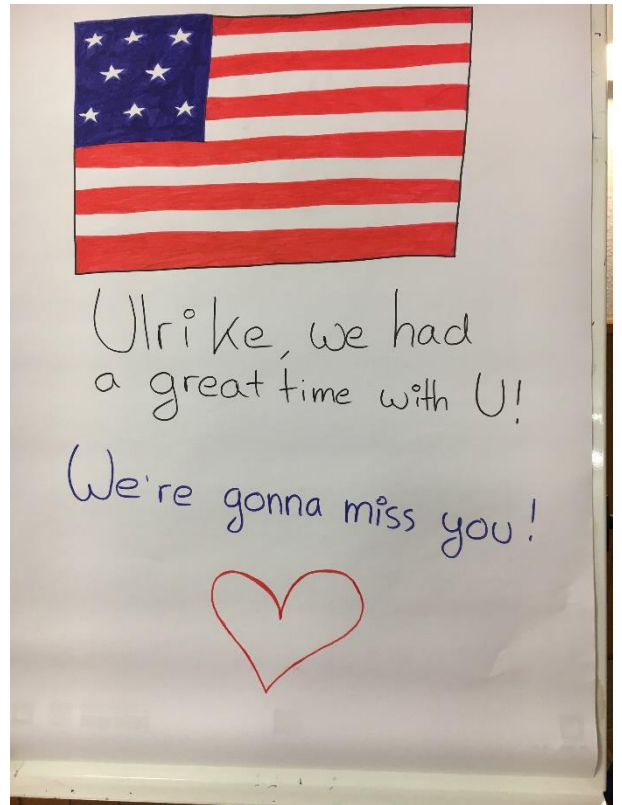 Ulrike, we had
a great time with U!
We're gonna miss you!